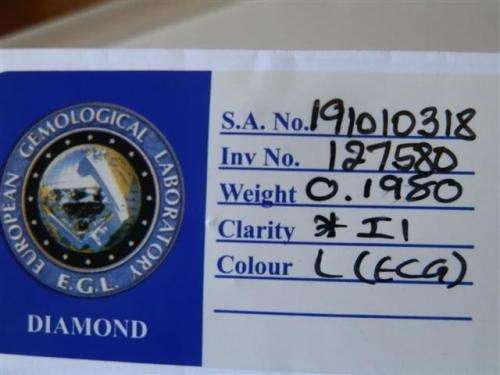 EUROPEAN GEMOLOGICAL LABORATORY
E.G.L.
DIAMOND
S.A. No. 191010318
Inv No. 127580
Weight 0.1980
Clarity * I1
Colour L (ECG)